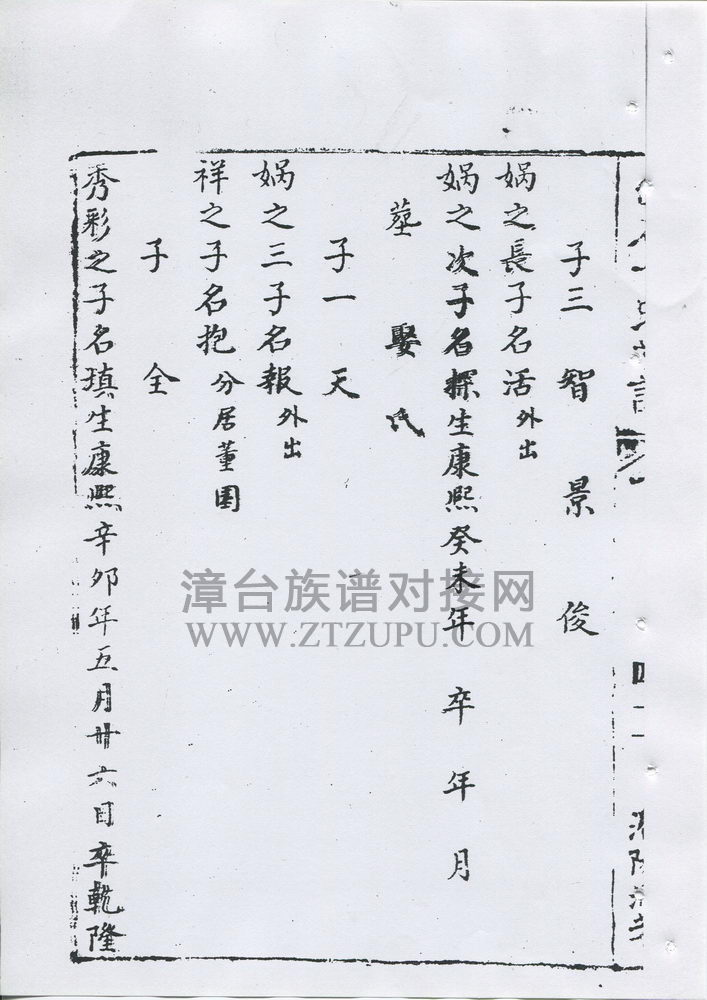 子三 智 景 俊
娲之長子名活 外出
娲之次子名探生康熙癸未年 卒 年 月
墓 娶 氏
子一 天
娲之三子名報 外出
祥之子名抱 分居董圍
子 全
秀彩之子名瑱生康熙辛卯年五月廿六日卒乾隆
漳台族谱对接网
WWW.ZTZUPU.COM